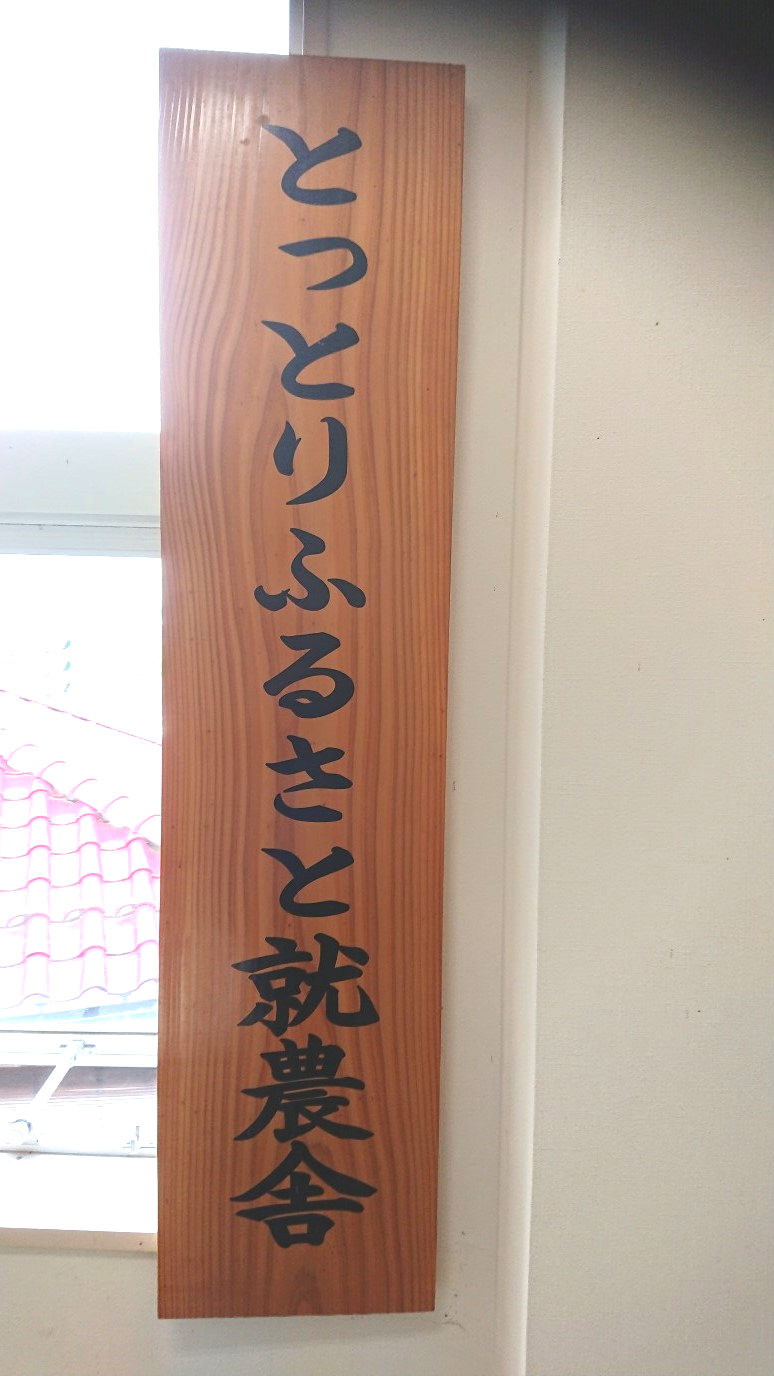 とっとりふるさと就農舎